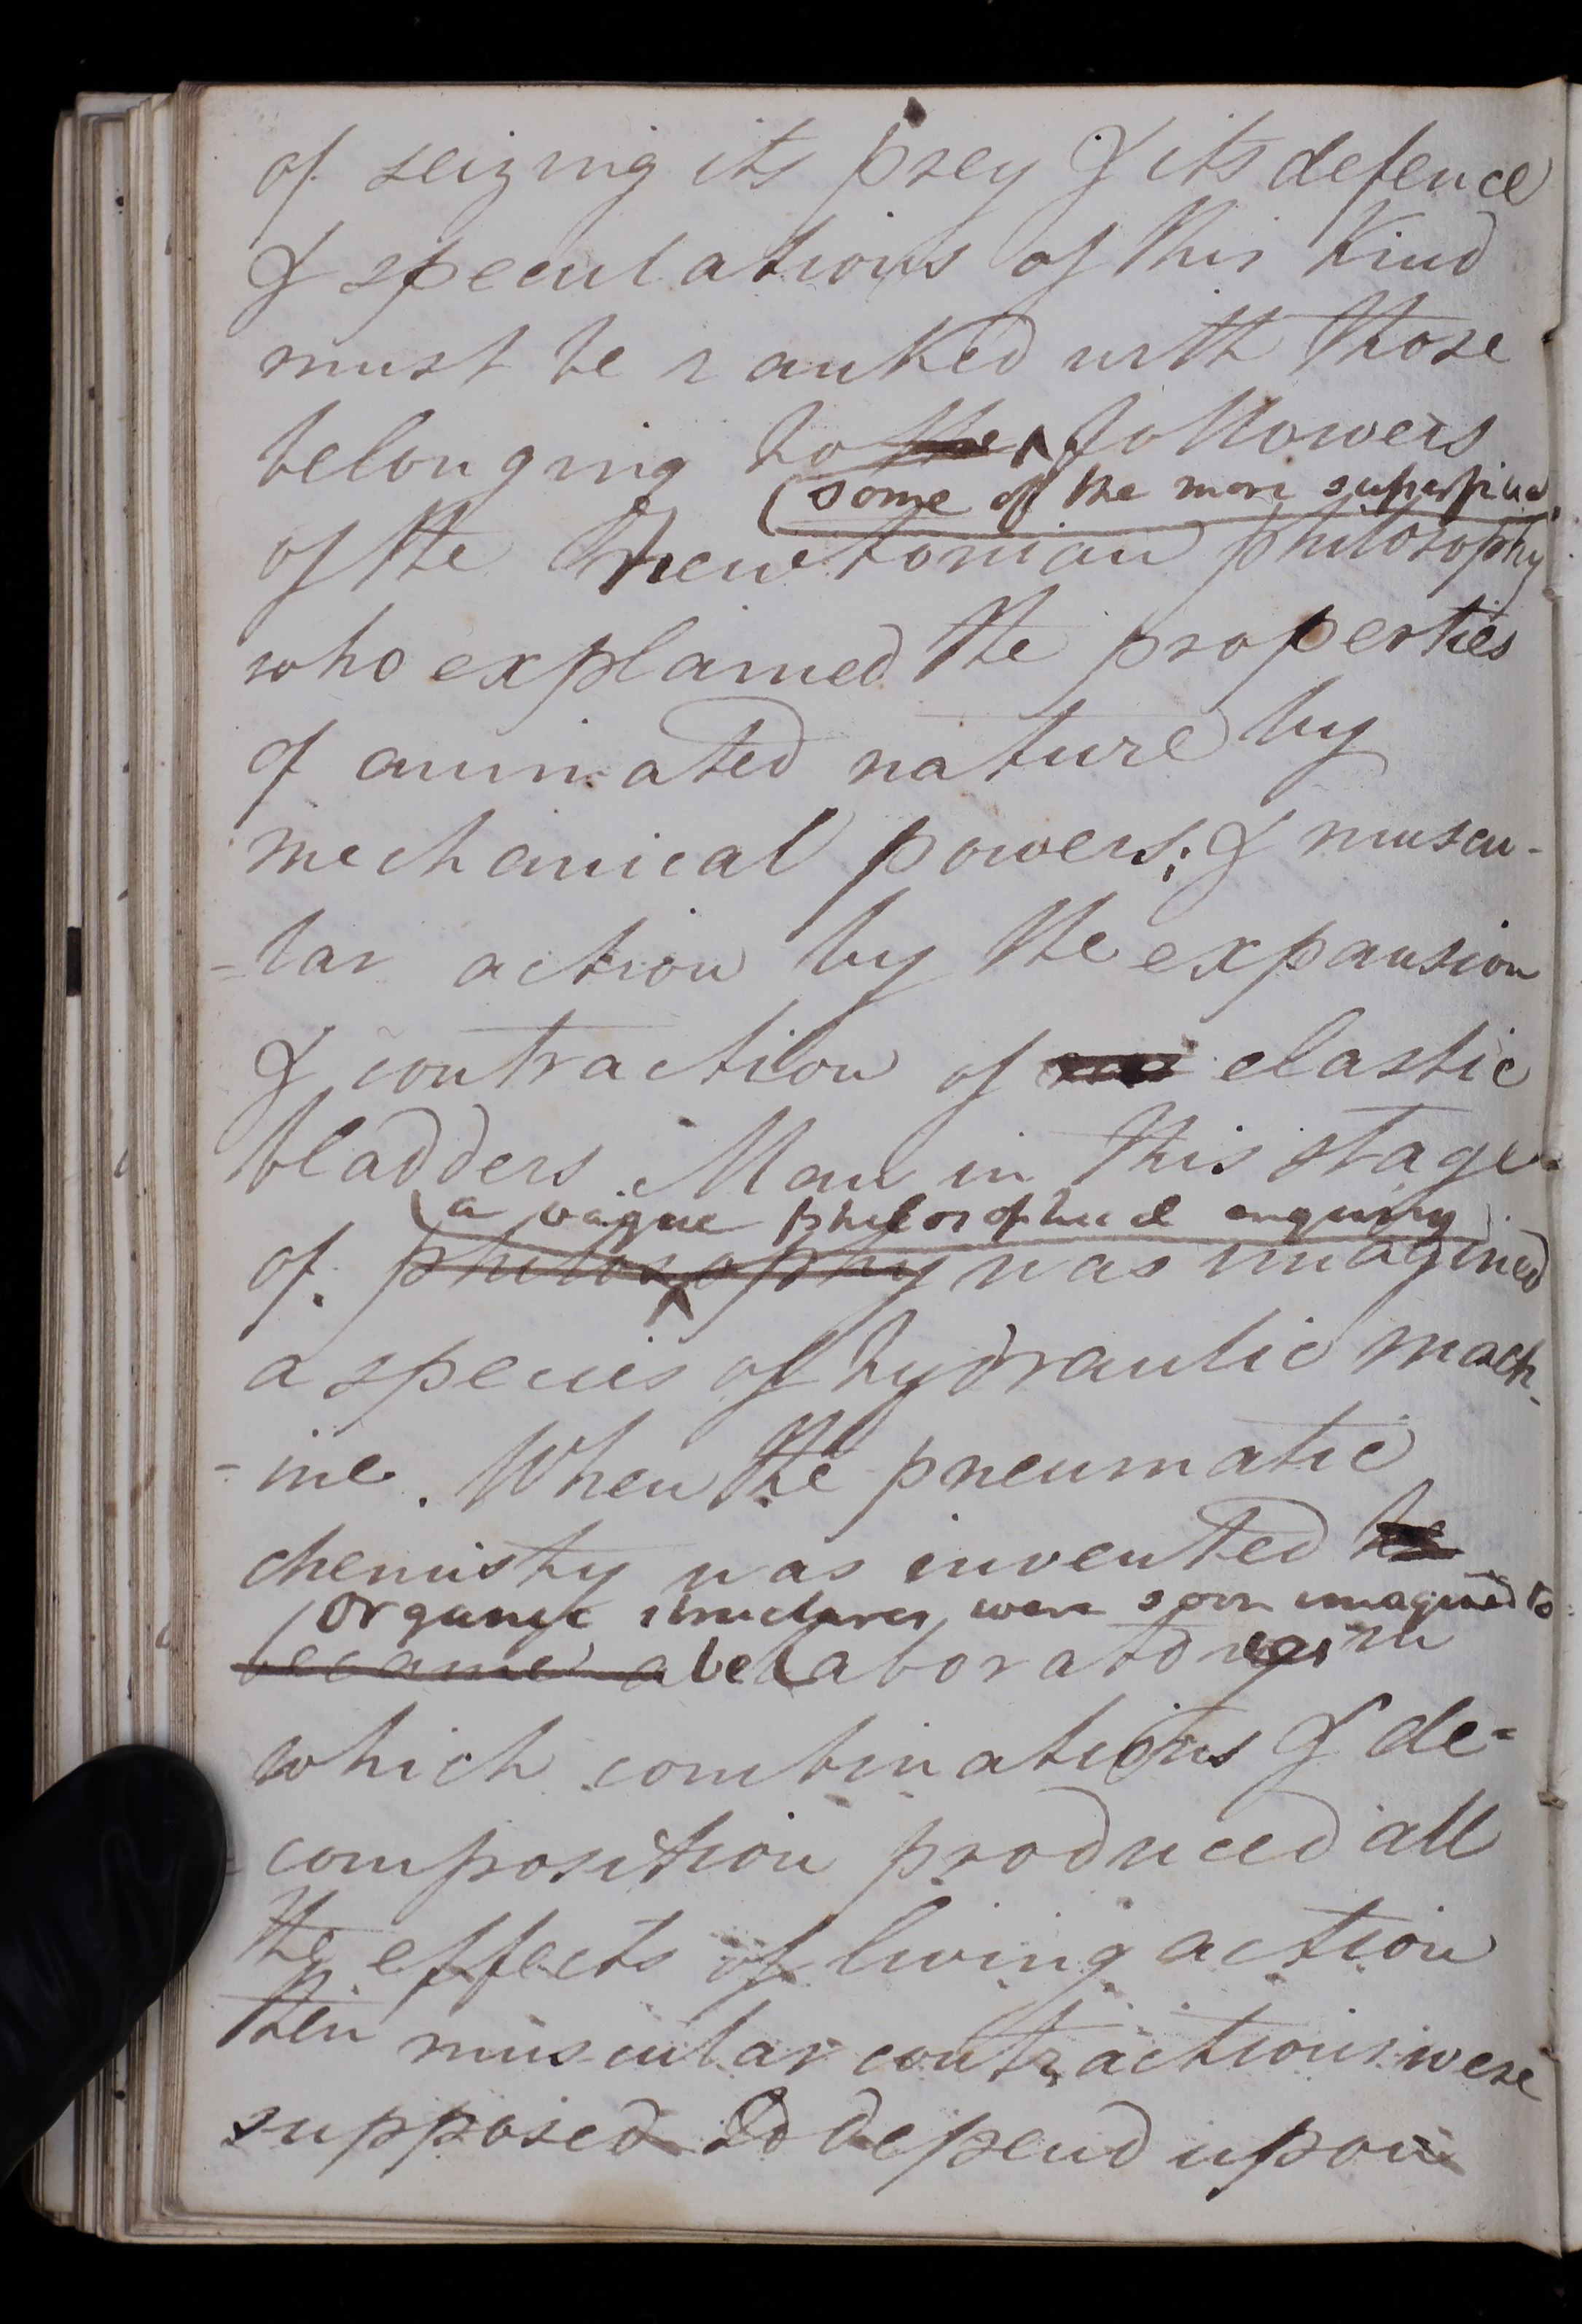 of seizing its prey & its defence
& speculations of this kind
must be ranked with those
belonging to the followers
some of the more superfine
of the newtonian philosophy
who explained the properties
of animated nature by
mechanical powers; & muscu-
-lar action by the expansion
& contraction of elastic
bladders. Man in this stage
a vague philosophical enquiry
of philosophy was imagined
a species of hydraulic mach-
-ine. When the pneumatic
chemistry was invented he
Organic structures were soon imagined to
became a be Laboratories in
which combinations & de=
=composition produced all
the effects of living action
then muscular contractions were
supposed to depend upon